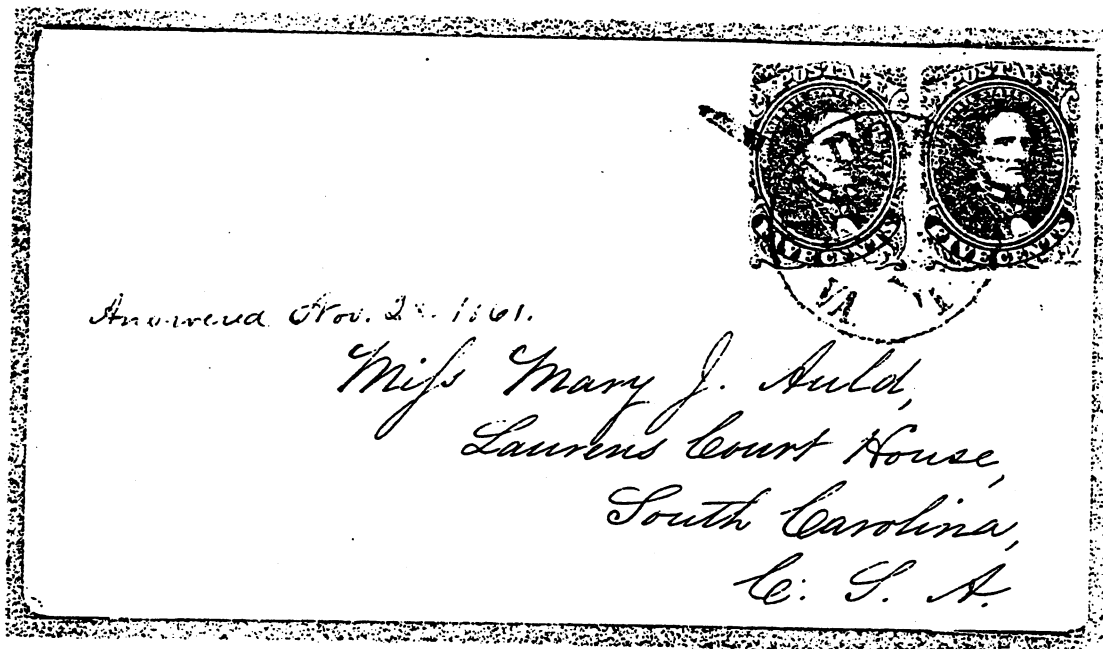 POSTAGE POSTAGE
FIVE CENTS FIVE CENTS
VA.
Answered Nov. 1861.
Miſs Mary J. Auld,
Laurens Court House,
South Carolina,
C. S. A.